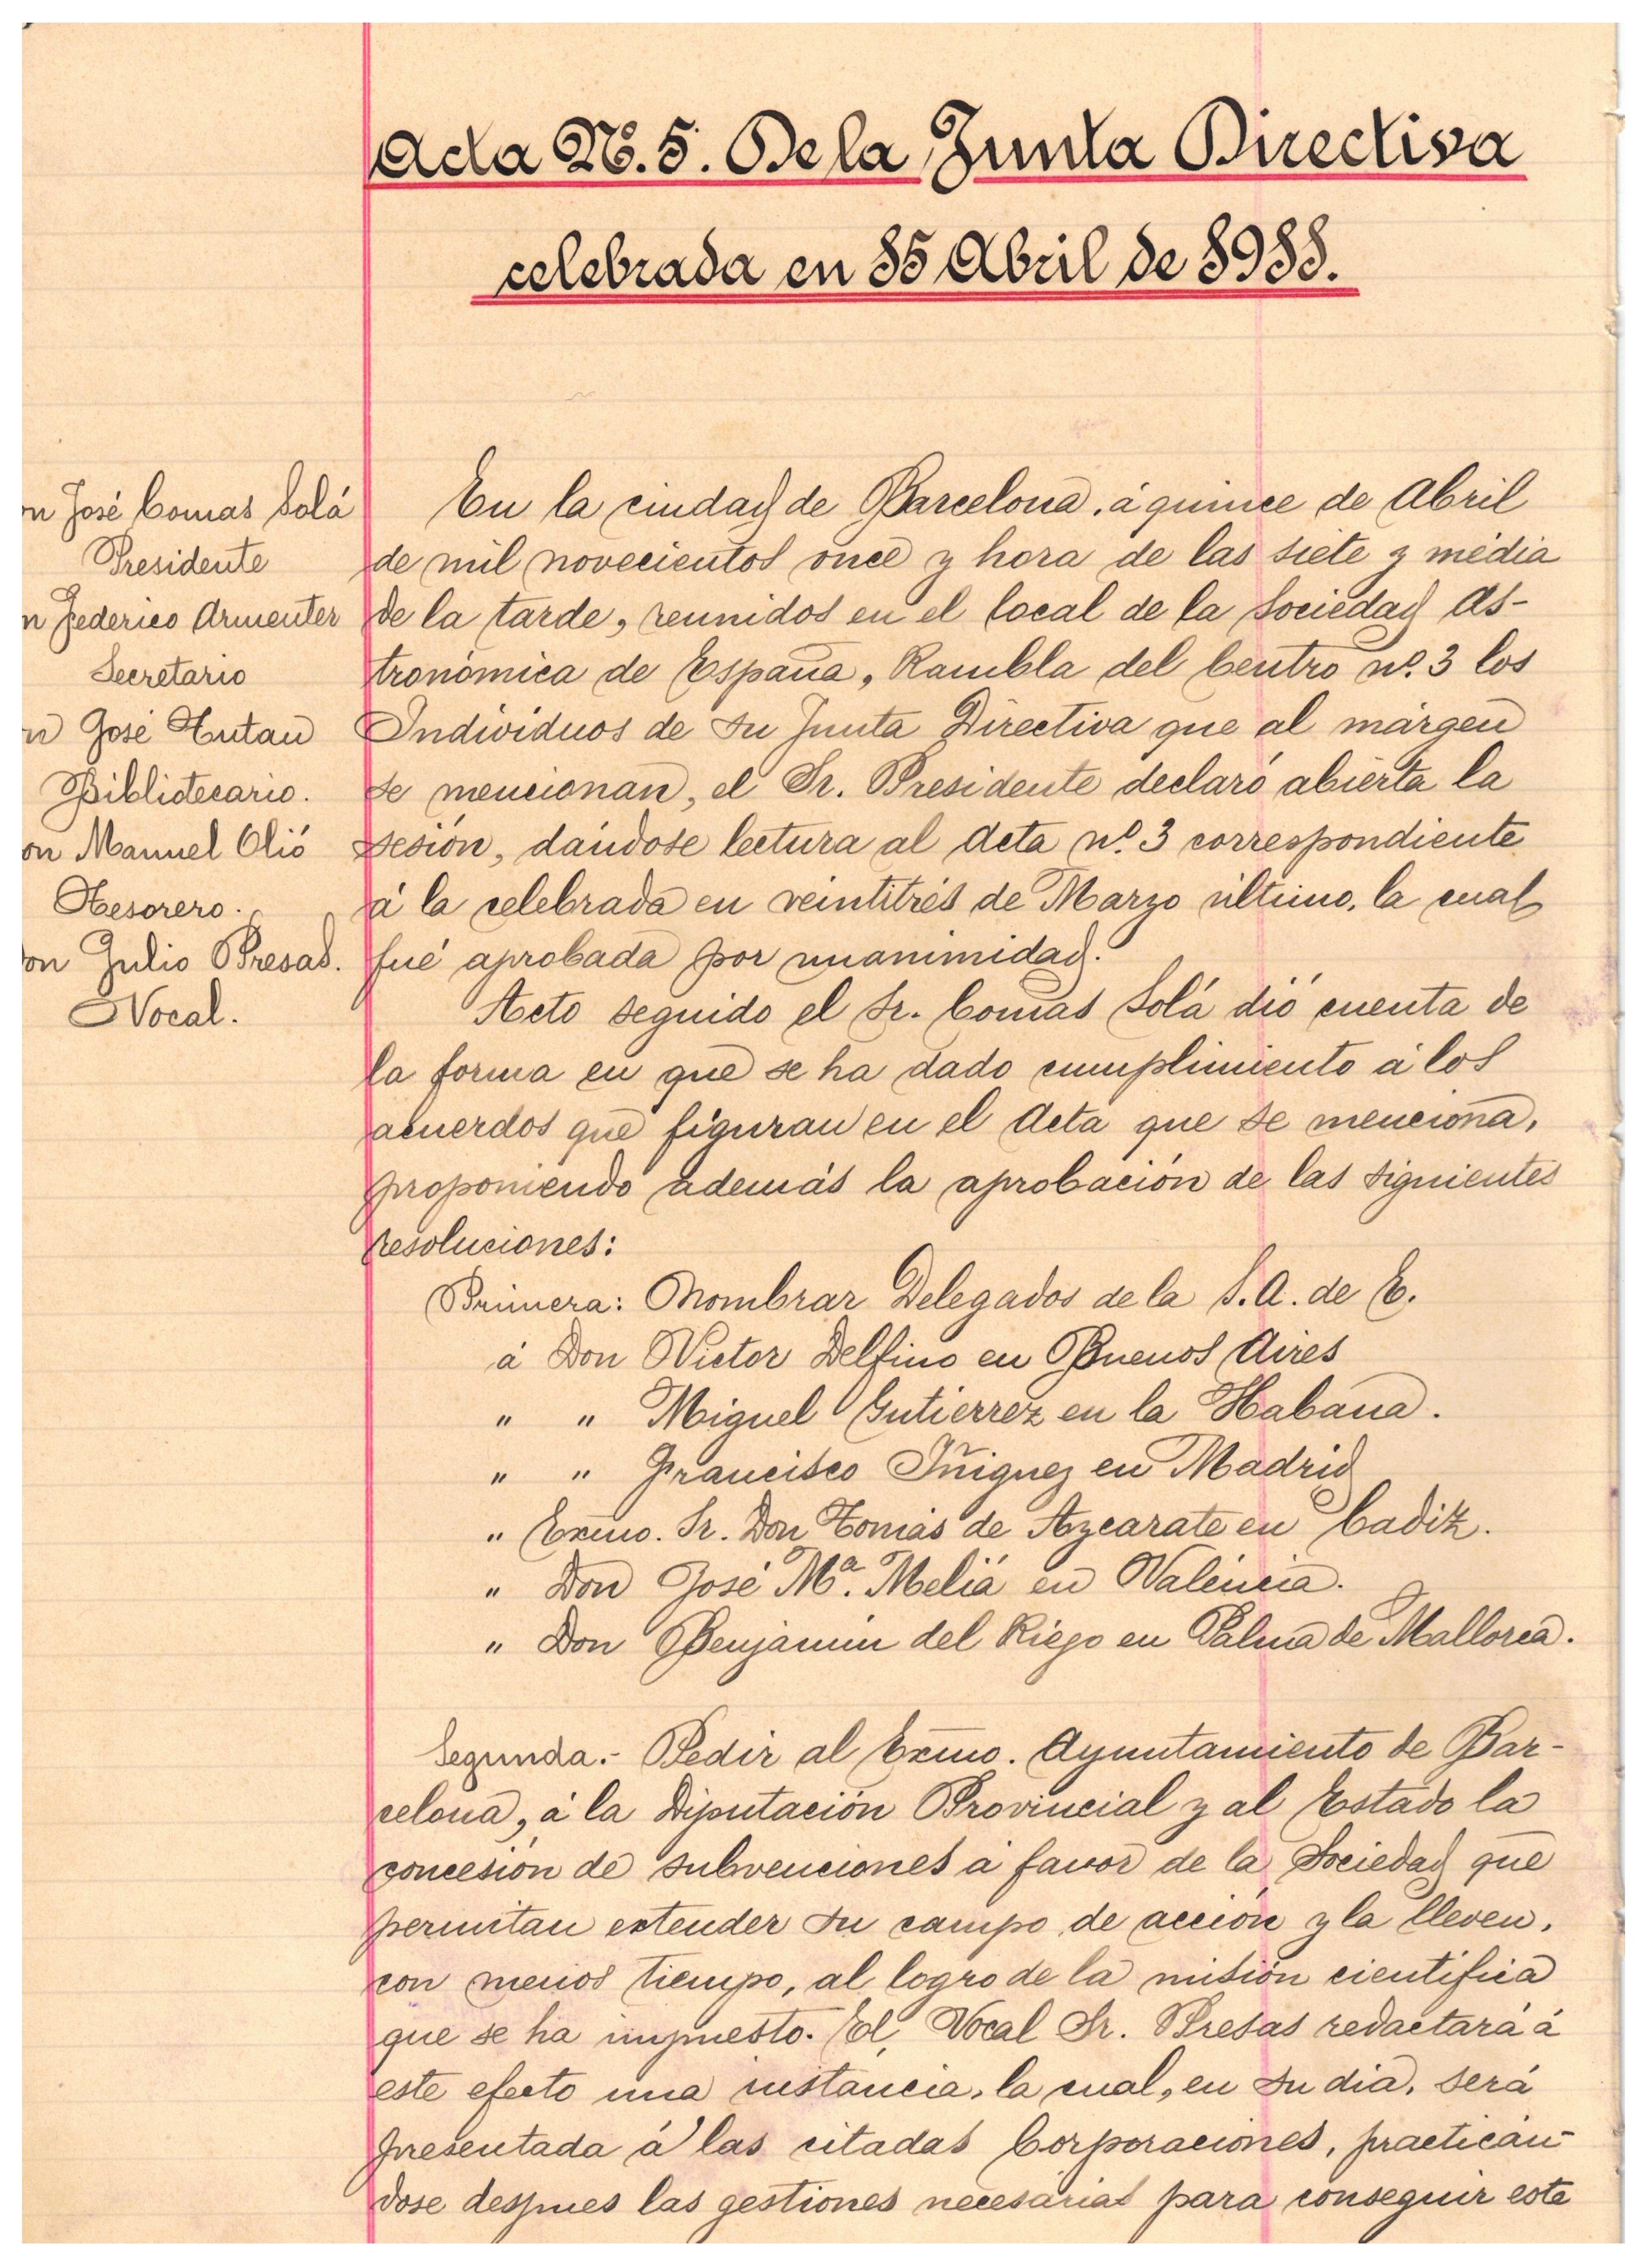 Acta Nº. 5. De la Junta Directiva
celebrada en 15 Abril de 1911.
on José Comas Solá
Presidente
n Federico Armenter
Secretario
n José Tutau
Bibliotecario.
on Manuel Olió
Tesorero.
on Julio Presas.
Vocal.
En la ciudad de Barcelona, á quince de Abril
de mil novecientos once y hora de las siete y média
de la tarde, reunidos en el local de la Sociedad As-
tronómica de España, Rambla del Centro nº. 3 los
Individuos de su Junta Directiva que al márgen
se mencionan, el Sr. Presidente declaró abierta la
sesión, dándose lectura al Acta nº. 3 correspondiente
á la celebrada en veintitrés de Marzo último, la cual
fué aprobada por unanimidad.
Acto seguido el Sr. Comas Solá dió cuenta de
la forma en que se ha dado cumplimiento á los
acuerdos que figuran en el Acta que se menciona,
proponiendo además la aprobación de las siguientes
resoluciones:
Primera: Nombrar Delegados de la S. A. de E.
á Don Victor Delfino en Buenos Aires
" " Miguel Gutierrez en la Habana.
" " Francisco Iñiguez en Madrid
" Exmo. Sr. Don Tomás de Azcarate en Cadiz.
" Don José Mª. Meliá en Valéncia.
" Don Benjamin del Riego en Palma de Mallorca.
Segunda.- Pedir al Exmo. Ayuntamiento de Bar-
celona, á la Diputación Provincial y al Estado la
concesión de subvenciones á favor de la Sociedad que
permitan extender su campo de acción y la lleven,
con menos tiempo, al logro de la misión científica
que se ha impuesto. El, Vocal Sr. Presas redactará á
este efecto una instáncia, la cual, en su dia, será
presentada á las citadas Corporaciones, practicán-
dose despues las gestiones necesárias para conseguir este